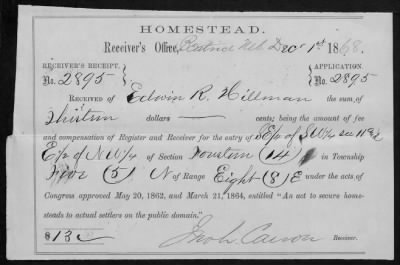 HOMESTEAD.
Receiver's Office, Beatrice Neb Decr 1st 1868.
RECEIVER'S RECEIPT. APPLICATION.
No. 2895 No. 2895
RECEIVED of Edwin R. Hillman the sum of
Thirteen dollars cents; being the amount of fee
and compensation of Register and Receiver for the entry of E/2 of SW/4 Sec 11 &
E/2 of NW/4 of Section Fourteen (14) in Township
Five (5) N of Range Eight (8) E under the acts of
Congress approved May 20, 1862, and March 21, 1864, entitled "An act to secure home-
steads to actual settlers on the public domain."
$13 Receiver.